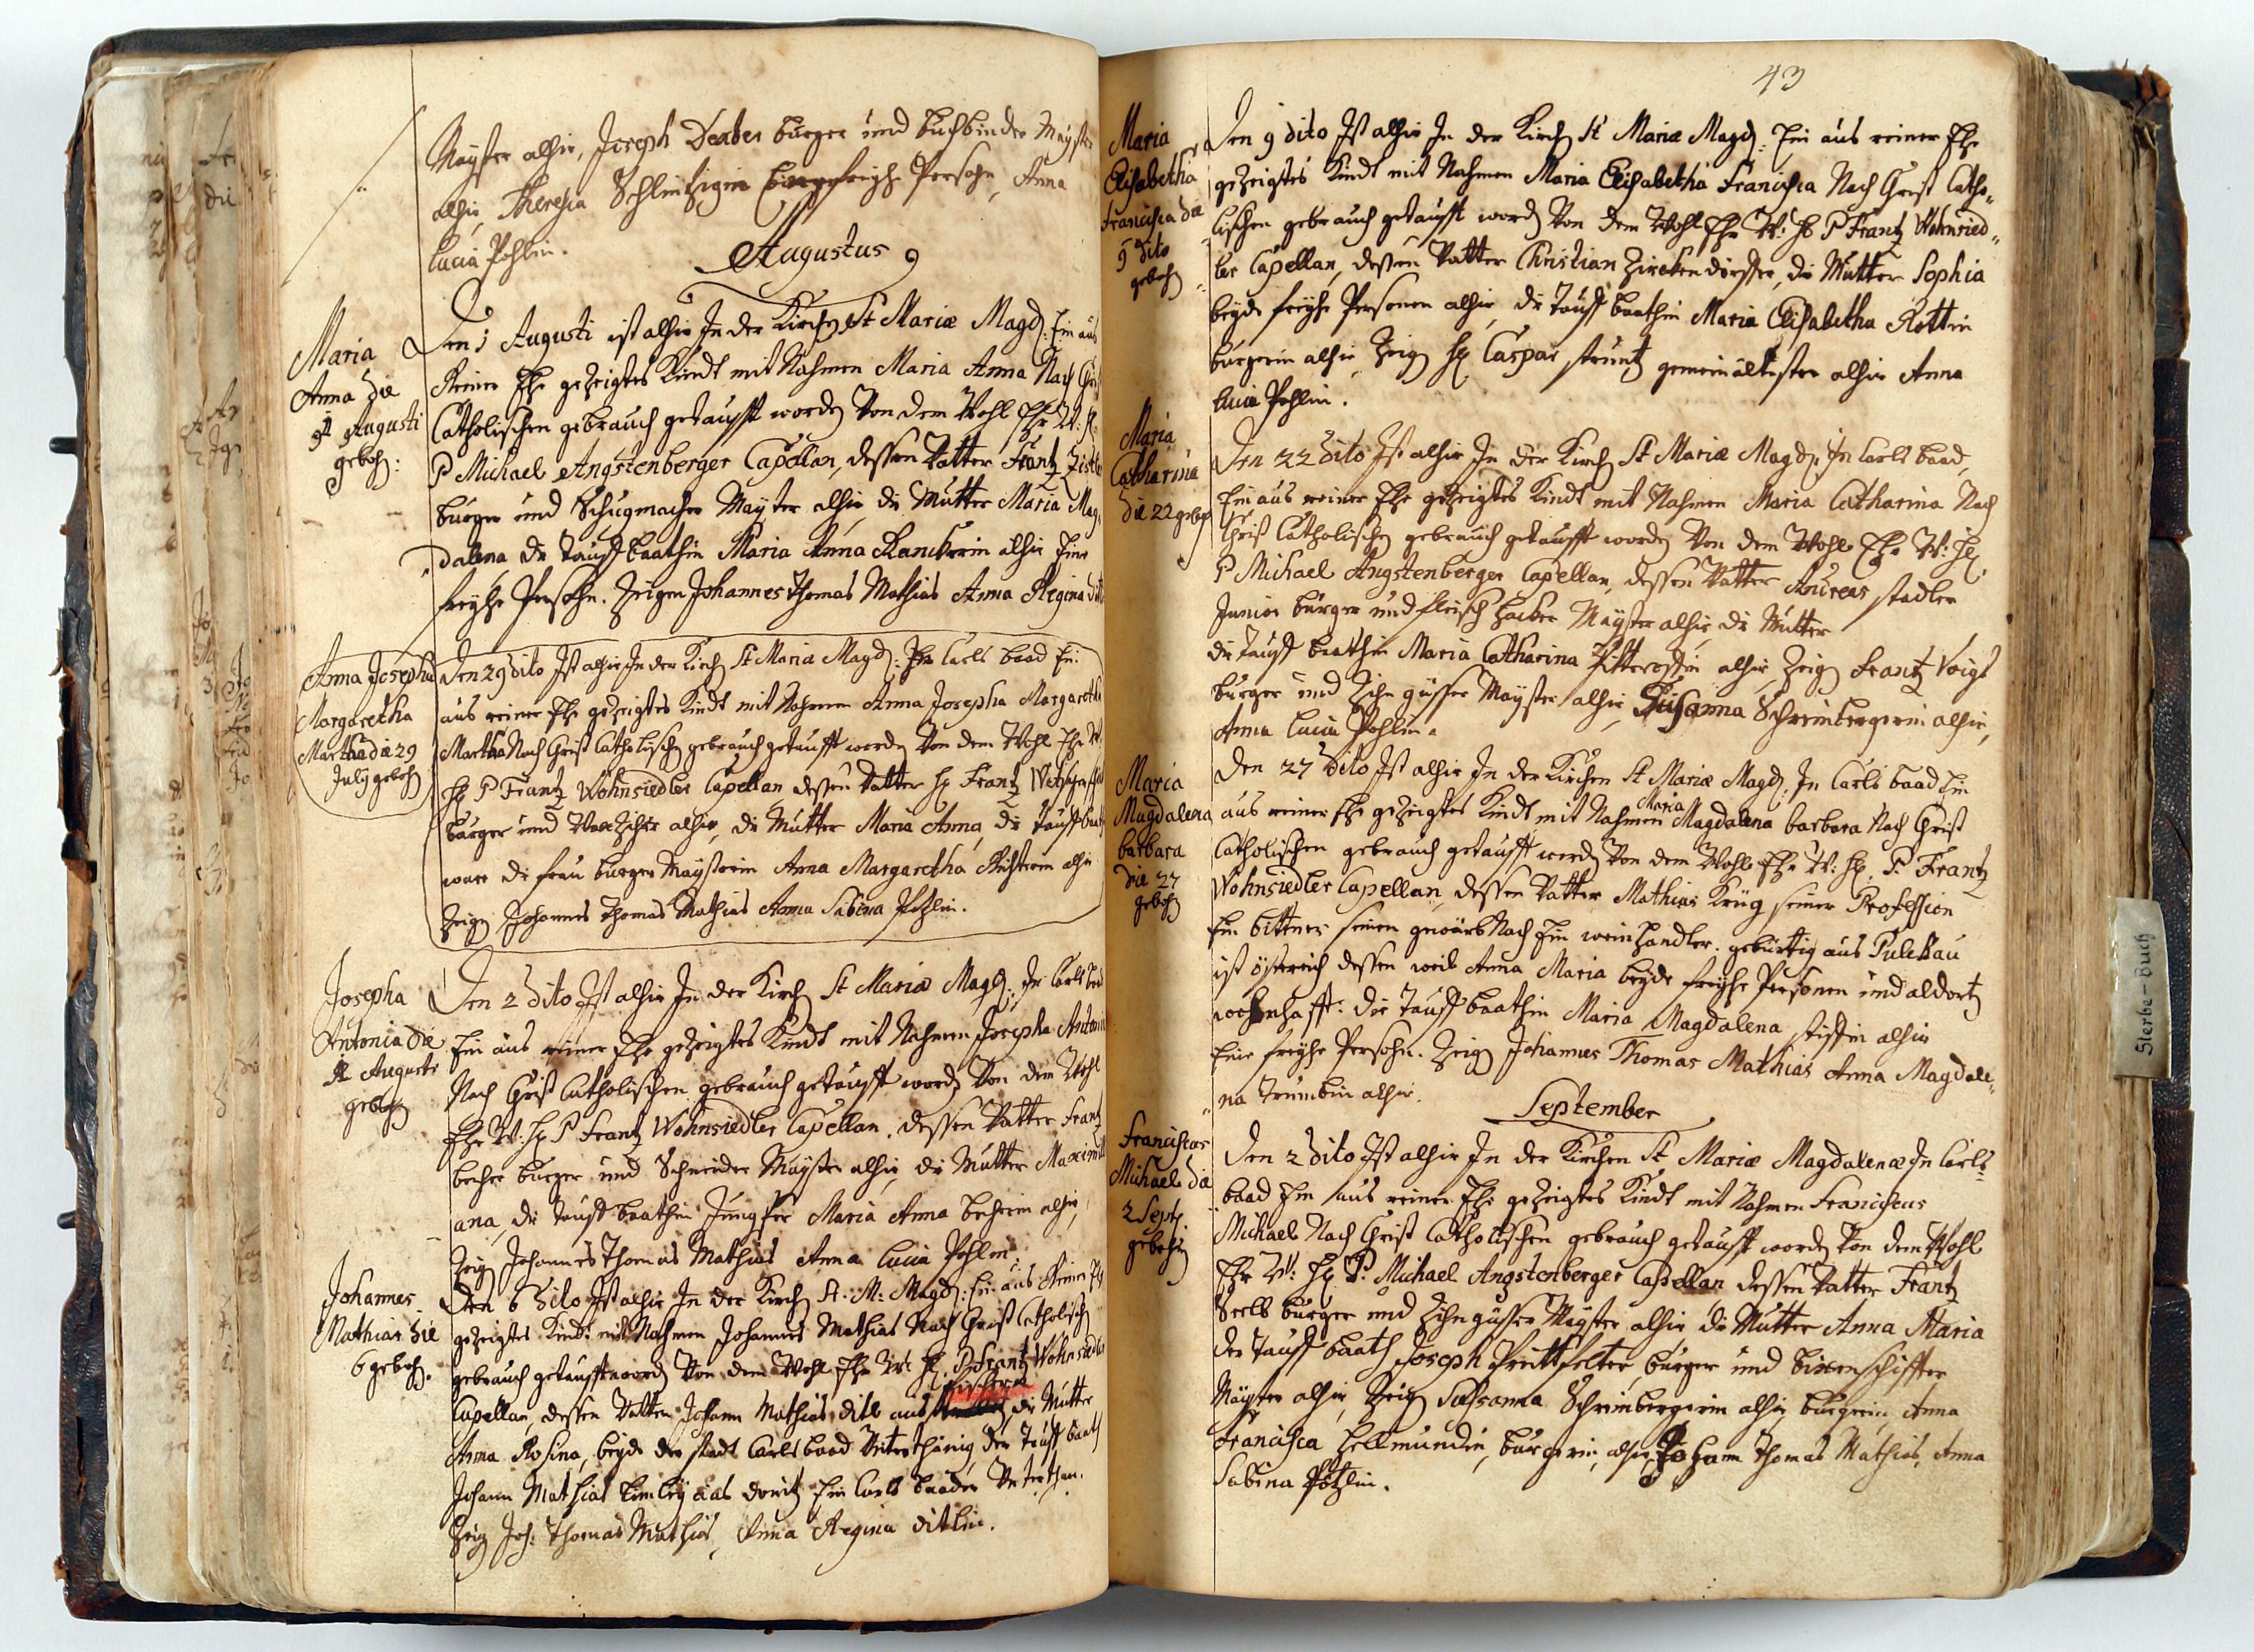 Mayster alhir, Joseph Dexber burger und buchbinder Mayster
alhir, Theresia Schlinzigin Persohn, Anna
Lucia Pohlin.
Augustus 9
Maria
Anna die
1t Augusti
geboh:
Den 1 Augusti ist alhir In der Kirch St Mariæ Magd: Ein aus
Reiner Ehe gezeigtes Kindt mit Nahmen Maria Anna Nach
Catholischen gebrauch getaufft worden Von dem Wohl Ehr W: H:
P Michael Angstenberger Capellan, dessen Vatter Frantz
burger und Schugmacher Mayster alhir, die Mutter Maria Mag,,
dalena die tauffbaathin Maria Anna Ranckerin alhir Eine
freyhe Persohn. Zeigen Johannes Thomas Mathias Anna Regina
Anna Josepha
Margaretha
Martha die 29
July geboh
Den 29 dito Ist alhir In der Kirch St Mariæ Magd: In Carls baad Ein
aus reiner Ehe gezeigtes Kindt mit Nahmen Anna Josepha Margaretha
Martha Nach Christ Catholischen gebrauch getaufft worden Von dem Wohl Ehr W:
H: P Frantz Wohnsiedler Capellan dessen Vatter H: Frantz
burger und alhir, die Mutter Maria Anna, die tauffbaathin
ware die frau burger Maysterin Anna Margaretha Richterin alhir
Zeig Johannes Thomas Mathias Anna Sabina Pohlin.
Josepha
Antonia die
2t Augusti
geboh
Den 2 dito Ist alhir In der Kirch St Mariæ Magd: In Carls baad
Ein aus reiner Ehe gezeigtes Kindt mit Nahmen Josepha Antonia
Nach Christ Catholischen gebrauch getaufft word Von dem Wohl
Ehr W: H: P Frantz Wohnsiedler Capellan, dessen Vatter Frantz
becher burger und Schneider Mayster alhir, die Mutter Maximili
ana, die tauff baathin Jungfer Maria Anna becherin alhir,
Zeig Johannes Thomas Mathias Anna Lucia Pohlin.
Johannes
Mathias die
6 geboh.
Den 6 dito Ist alhir In der Kirch St. M: Magd: Ein aus Reiner Ehe
gezeigtes Kindt mit Nahmen Johannes Mathias Nach Christ Catholisch
gebrauch getaufft word Von dem Wohl Ehr W: H: P: Frantz Wohnsiedler
Capellan, dessen Vatter Johann Mathias ditl aus die Mutter
Anna Rosina, beyde der stadt Carlsbaad Unterthänig, der tauff baath
Johann Mathias aus donitz Ein Carls baader Unterthan.
Zeig Joh: Thomas Mathias, Anna Regina ditlin.
43
Maria
Elisabetha
Francisca die
9 dito
geboh
Den 9 dito Ist alhir In der Kirch St Mariæ Magd: Ein aus reiner Ehe
gezeigtes Kindt mit Nahmen Maria Elisabetha Francisca Nach Christ Catho,,
lischen gebrauch getaufft word Von dem Wohl Ehr W: H: P Frantz Wohnsied,,
ler Capellan, dessen Vatter Christian Zirckendörffer, die Mutter Sophia
beyde freyhe Personen alhir, die tauff baathin Maria Elisabetha Rottin
burgerin alhir, Zeig H: Caspar strunz gemein ältester alhir Anna
Lucia Pohlin.
Maria
Catharina
die 22 geboh
Den 22 dito Ist alhir In der Kirch St Mariæ Magd: In Carls baad,
Ein aus reiner Ehe gezeigtes Kindt mit Nahmen Maria Catharina Nach
Christ Catholischen gebrauch getaufft worden Von dem Wohl Ehr W: H:
P Michael Angstenberger Capellan, dessen Vatter Andreas stadler
Junior burger und fleisch hacker Mayster alhir, die Mutter
die tauff baathin Maria Catharina alhir, Zeig Frantz Voigt
burger und Zihn güsser Mayster alhir, Susanna Schrimbergerin alhir,
Anna Lucia Pohlin.
Maria
Magdalena
barbara
die 27
geboh
Den 27 dito Ist alhir In der Kirchen St Mariæ Magd: In Carls baad Ein
aus reiner Ehe gezeigtes Kindt mit Nahmen Maria Magdalena barbara Nach Christ
Catholischen gebrauch getaufft word Von dem Wohl Ehr W: H: P: Frantz
Wohnsiedler Capellan, dessen Vatter Mathias Krug seiner Profession
Ein bittner seinen gewärb Nach Ein weinhandler gebürtig aus Pulckau
ist österreich dessen weib Anna Maria beyde freyhe Personen und aldort
wohnhafft: die tauff baathin Maria Magdalena alhir
Eine freyhe Persohn. Zeig Johannes Thomas Mathias Anna Magdale,,
na trumbin alhir.
September
Franciscus
Michael die
2 Sept.
gebohr
Den 2 dito Ist alhir In der Kirchen St Mariæ Magdalenæ In Carls
baad Ein aus reiner Ehe gezeigtes Kindt mit Nahmen Franciscus
Michael Nach Christ Catholischen gebrauch getaufft word Von dem Wohl
Ehr W: H: P: Michael Angstenberger Capellan dessen Vatter Frantz
Seelb burger und Zihn güsser Mayster alhir, die Mutter Anna Maria
der tauff baath Joseph burger und bixenschiffter
Mayster alhir, Zeig Sussanna Schrimbergerin alhir, burgerin, Anna
Francisca Hellmundin, burgerin, alhir Johann Thomas Mathias, Anna
Sabina Pohlin.
Sterbe-Buch